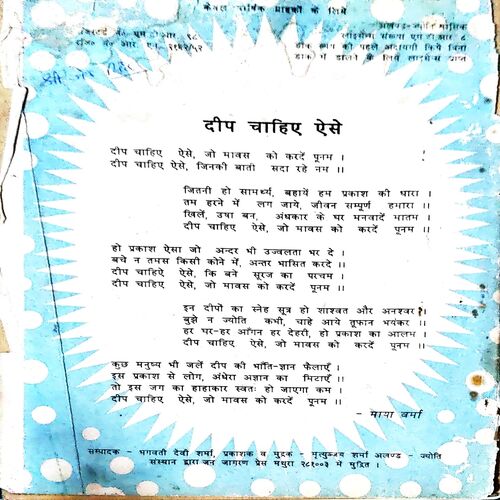 केवल वार्षिक ग्राहकों के लिये
अखण्ड-ज्योति मासिक
लाइसेन्स संख्या एल टी आर ८
डाक व्यय की पहले अदायगी किये बिना
डाक में डालने के लिये लाइसेन्स प्राप्त
दीप चाहिए ऐसे
दीप चाहिए ऐसे, जो मावस को करदें पूनम ।
दीप चाहिए ऐसे, जिनकी बाती सदा रहे नम ।।
जितनी हो सामर्थ्य, बहायें हम प्रकाश की धारा ।
तम हरने में लग जाये, जीवन सम्पूर्ण हमारा ।।
खिलें, उषा बन, अंधकार के घर मनवादें मातम ।
दीप चाहिए ऐसे, जो मावस को करदें पूनम ।।
हो प्रकाश ऐसा जो अन्दर भी उज्वलता भर दे ।
बचे न तमस किसी कोने में, अन्तर भासित करदे ।।
दीप चाहिऐ ऐसे, कि बने सूरज का परचम ।
दीप चाहिए ऐसे, जो मावस को करदें पूनम ।।
इन दीपों का स्नेह सूत्र हो शाश्वत और अनश्वर ।
बुझे न ज्योति कभी, चाहे आये तूफान भयंकर ।।
हर घर-हर आँगन हर देहरी, हो प्रकाश का आलम ।
दीप चाहिए ऐसे, जो मावस को करदें पूनम ।।
कुछ मनुष्य भी जलें दीप की भाँति-ज्ञान फैलाएँ ।
इस प्रकाश से लोग, अंधेरा अज्ञान का मिटाएँ ।।
तो इस जग का हाहाकार स्वतः हो जाएगा कम ।
दीप चाहिए ऐसे, जो मावस को करदें पूनम ।।
- माया वर्मा
सम्पादक - भगवती देवी शर्मा, प्रकाशक व मुद्रक - मृत्युञ्जय शर्मा अखण्ड - ज्योति
संस्थान द्वारा जन जागरण प्रेस मथुरा २८१००३ में मुद्रित ।